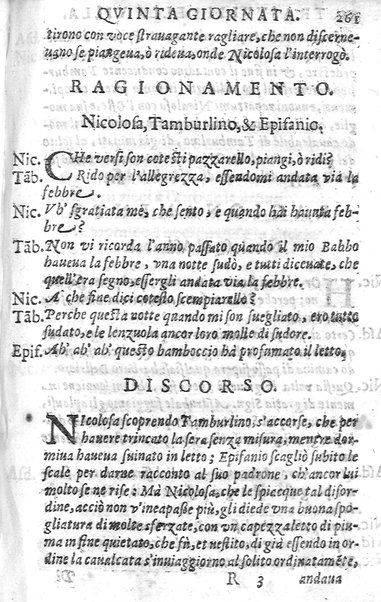 QVINTA GIORNATA. 261
tirono con voce stravagante ragliare, che non discerne-
uano se piangeua, ò rideua, onde Nicolosa l'interrogò.
RAGIONAMENTO.
Nicolosa, Tamburlino, & Epifanio.
Nic. CHe versi son cotesti pazzarello, piangi, ò ridi?
Tãb. Rido per l'allegrezza, essendomi andata via la
febbre.
Nic. Vh' sgratiata me, che sento, e quando hai hauuta feb-
bre?
Tãb. Non vi ricorda l'anno passato quando il mio Babbo
haueua la febbre, vna notte sudò, e tutti diceuate, che
quell'era segno, essergli andata via la febbre.
Nic. A' che fine dici cotesto scempiarello?
Tãb. Perche questa notte quando mi son suegliato, ero tutto
sudato, e le lenzuola ancor loro molle di sudore.
Epif. Ah' ah' ah' questo bamboccio hà profumato il letto.
DISCORSO.
NIcolosa scoprendo Tamburlino, s'accorse, che per
hauere trincato la sera senza misura, mentre dor-
miua haueua suinato in letto; Epifanio scagliò subito le
scale per darne racconto al suo padrone, ch'ancor lui
molto se ne rise: Mà Nicolosa, che le spiacque tal disor-
dine, acciò non v'incapasse più, gli diede vna buona spo-
gliatura di molte sferzate, con vn capezzal etto di piu-
ma in fine quietato, che fù, et vestito, di già essendo in or-
dine la caualcata s'inuiaggiorno al solito ordinatamẽte,
R 3 andaua